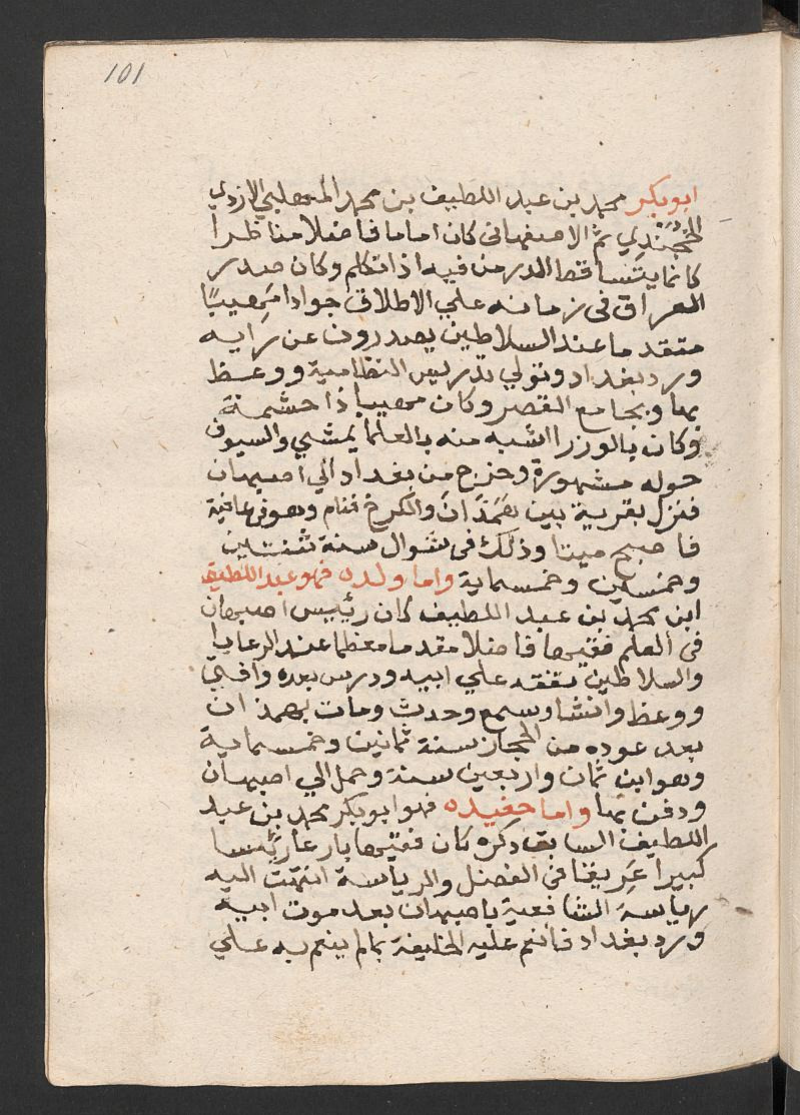 101
ابوبكر محمد بن عبد اللطيف بن محمد المهلبي الازدي
الخُجَنْدِي ثم الاصفهاني كان اماما فاضلا مناظرا
كانما يتساقط الدر من فيه اذا تكلم وكان صدر
العراق في زمانه علي الاطلاق جوادا مَهِيبًا
متقدما عند السلاطين يصدرون عن رايه
ورد بغداد وتولي تدريس النظامية ووعظ
بها وبجامع القصر وكان مهيبا ذا حشمة
وكان بالوزرا اشبه منه بالعلما يمشي والسيوف
حوله مشهورة وخرج من بغداد الي اصبهان
فنزل بقرية بين هَمَذَان والكرخ فنام وهو في عافية
فاصبح ميتا وذلك في شوال سنة ثنتين
وخمسين وخمسماية واما ولده فهو عبد اللطيف
ابن محمد بن عبد اللطيف كان رئيس اصبهان
في العلم فقيها فاضلا مقدما معظما عند الرعايا
والسلاطين تفقه علي ابيه ودرس بعده وافتي
ووعظ وانشا وسمع وحدث ومات بهمذان
بعد عوده من الحجاز سنة ثمانين وخمسماية
وهو ابن ثمان واربعين سنة وحمل الي اصبهان
ودفن بها واما حفيده فهو ابو بكر محمد بن عبد
اللطيف السابق ذكره كان فقيها بارعا رئيسا
كبيرا عَريقا في الفضل والرياسة انتهت اليه
رياسة الشافعية باصبهان بعد موت ابيه
ورد بغداد فانعم عليه الخليفة بما لم ينعم به علي